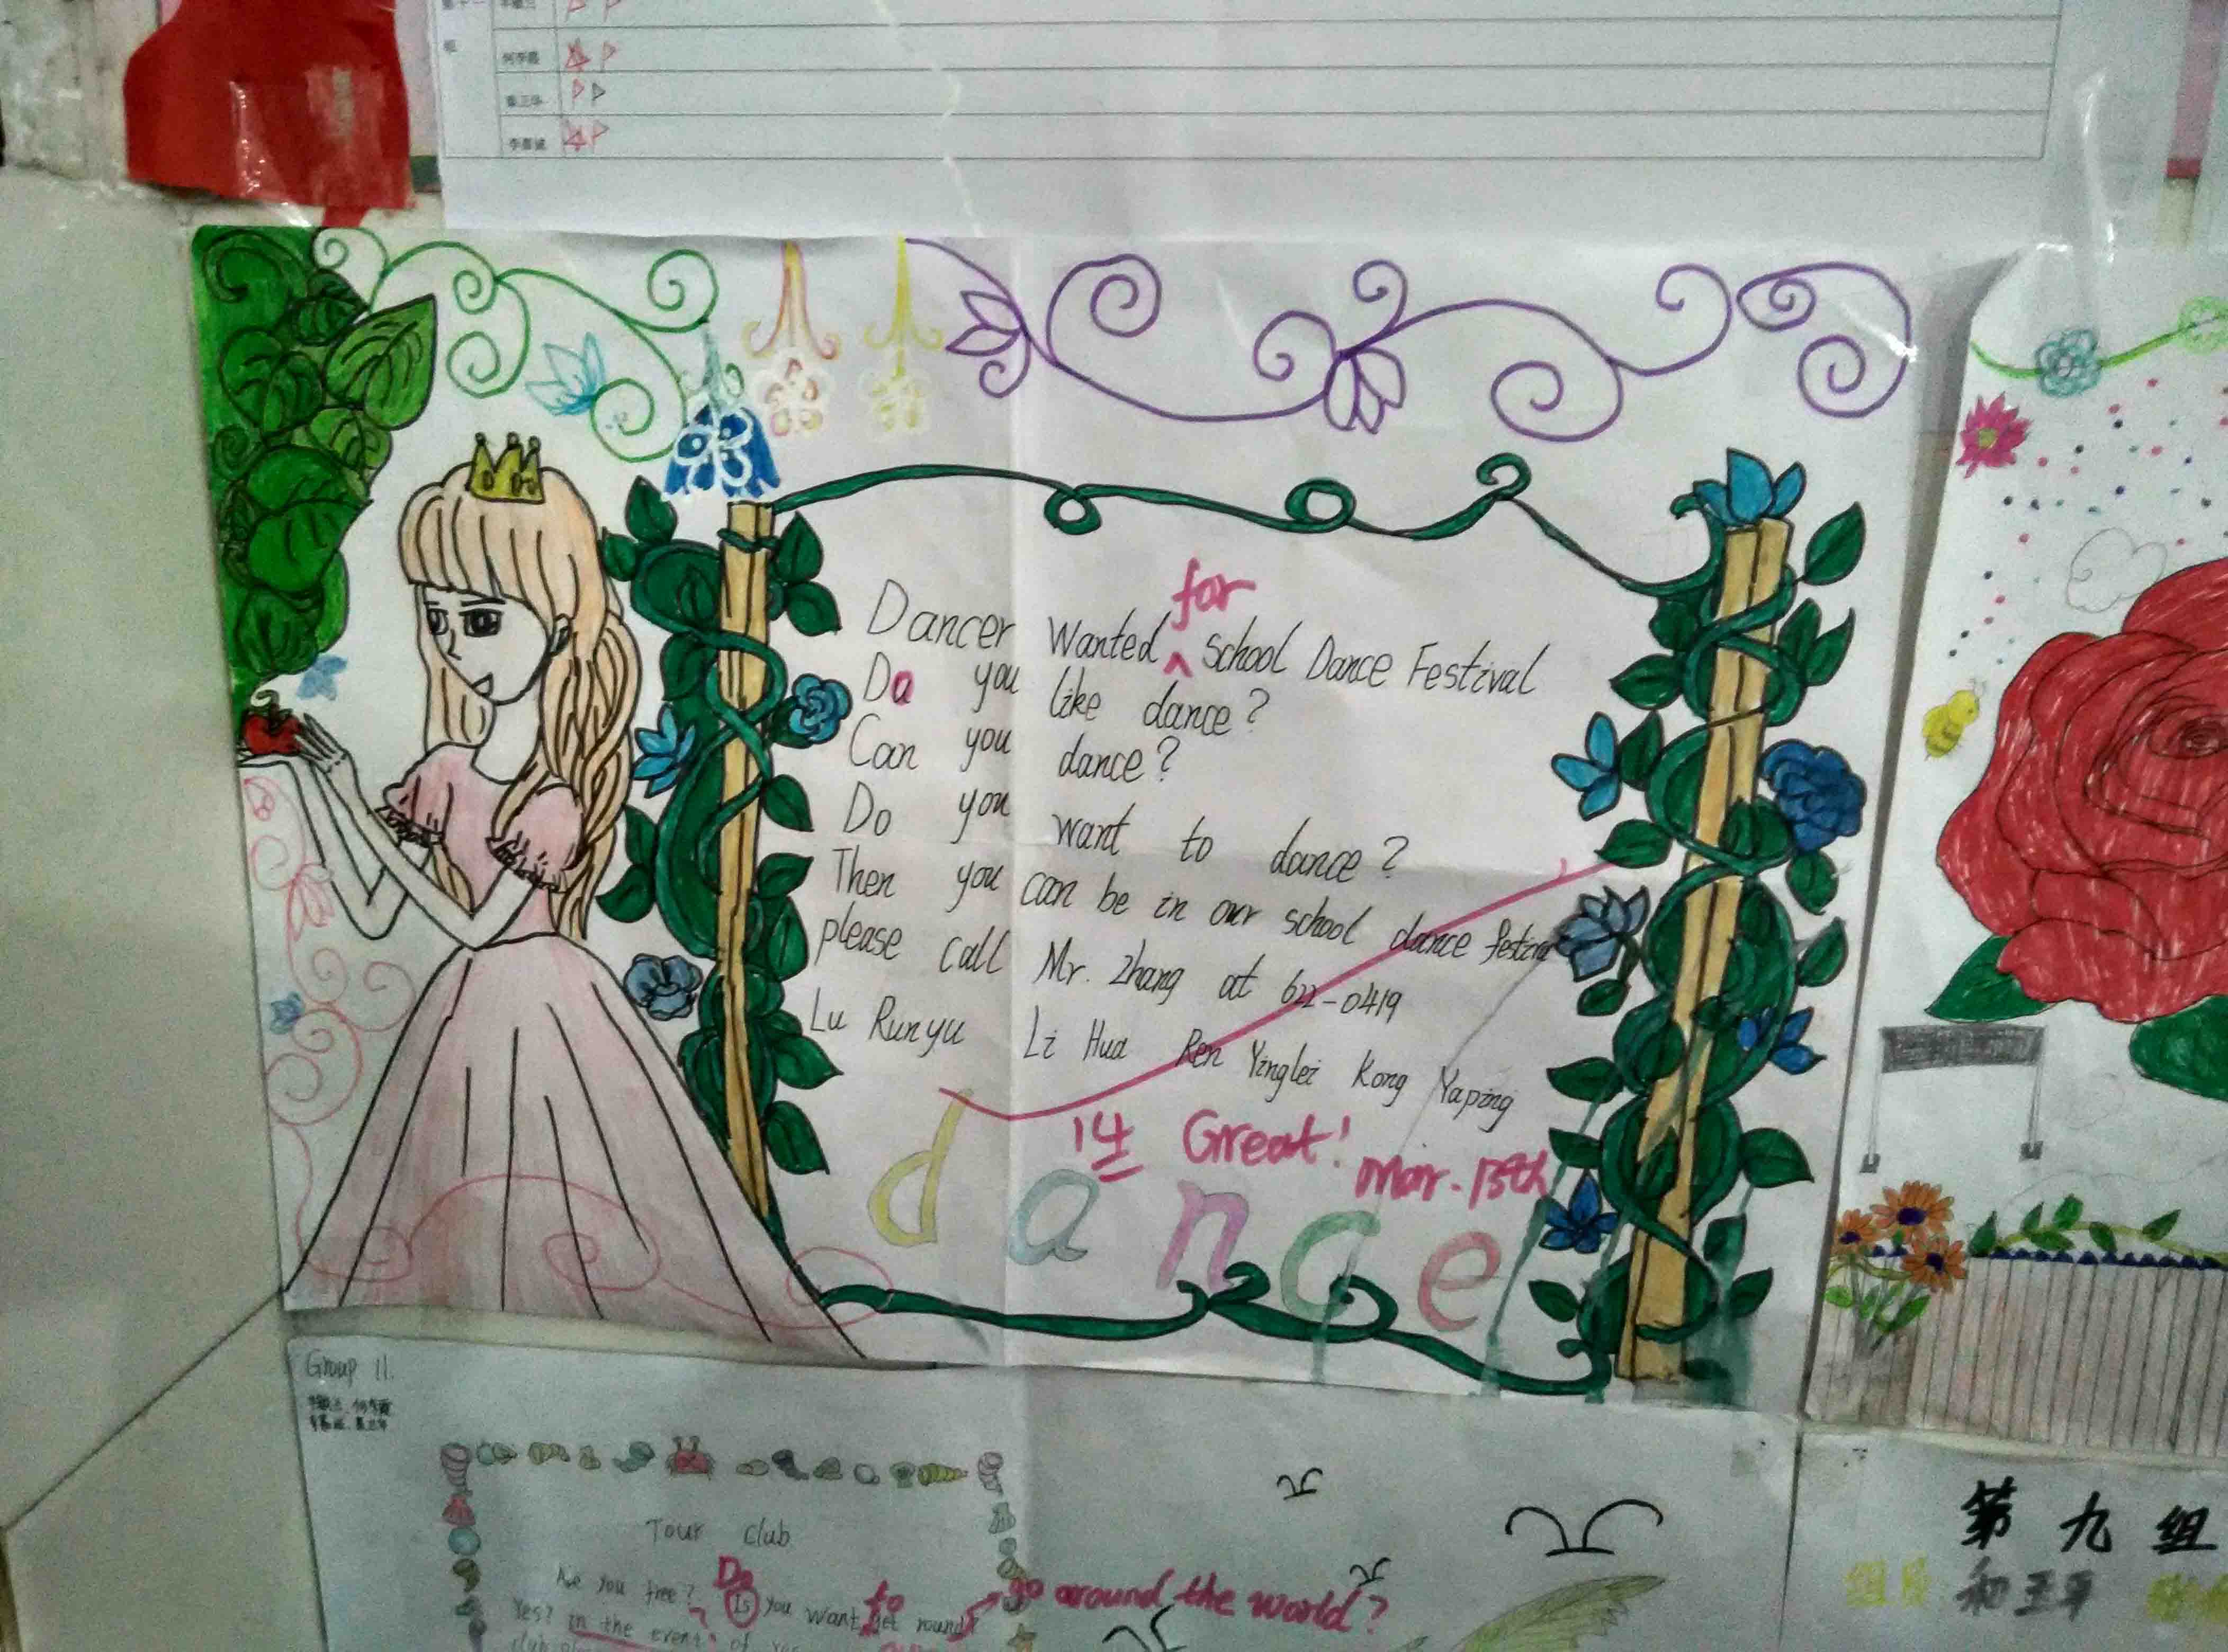 李嘉诚
for
Dancer Wanted ^ School Dance Festival
Do you like dance?
Can you dance?
Do you want to dance?
Then you can be in our school dance festival
please call Mr. Zhang at 622-0419
Lu Runyu Li Hua Ren Yinglei Kong Yaping
14 Great! Mar. 13th
dance
Group 11.
Tour club
Do
Are you free? Is you want get round?
to
go around the world?
Yes? in the event of
club
第九组
组员